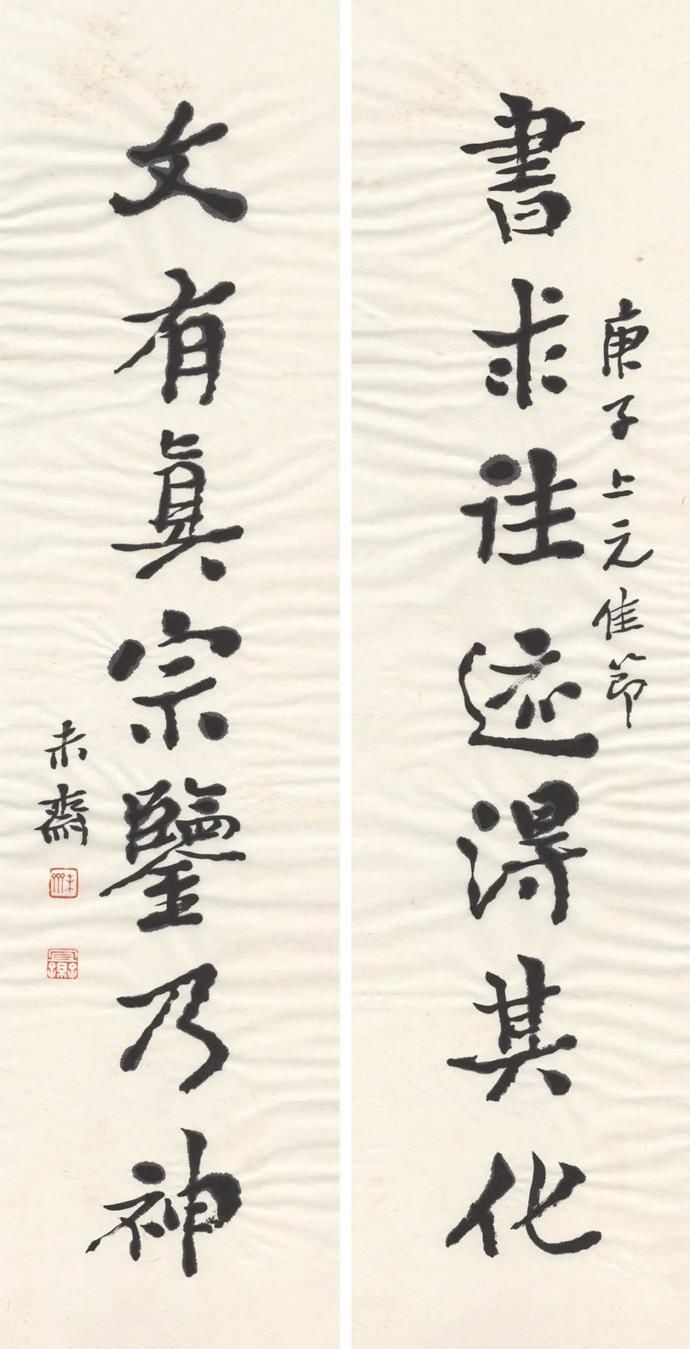 庚子上元佳節
書求往迹得其化
文有真宗鑒乃神
齋